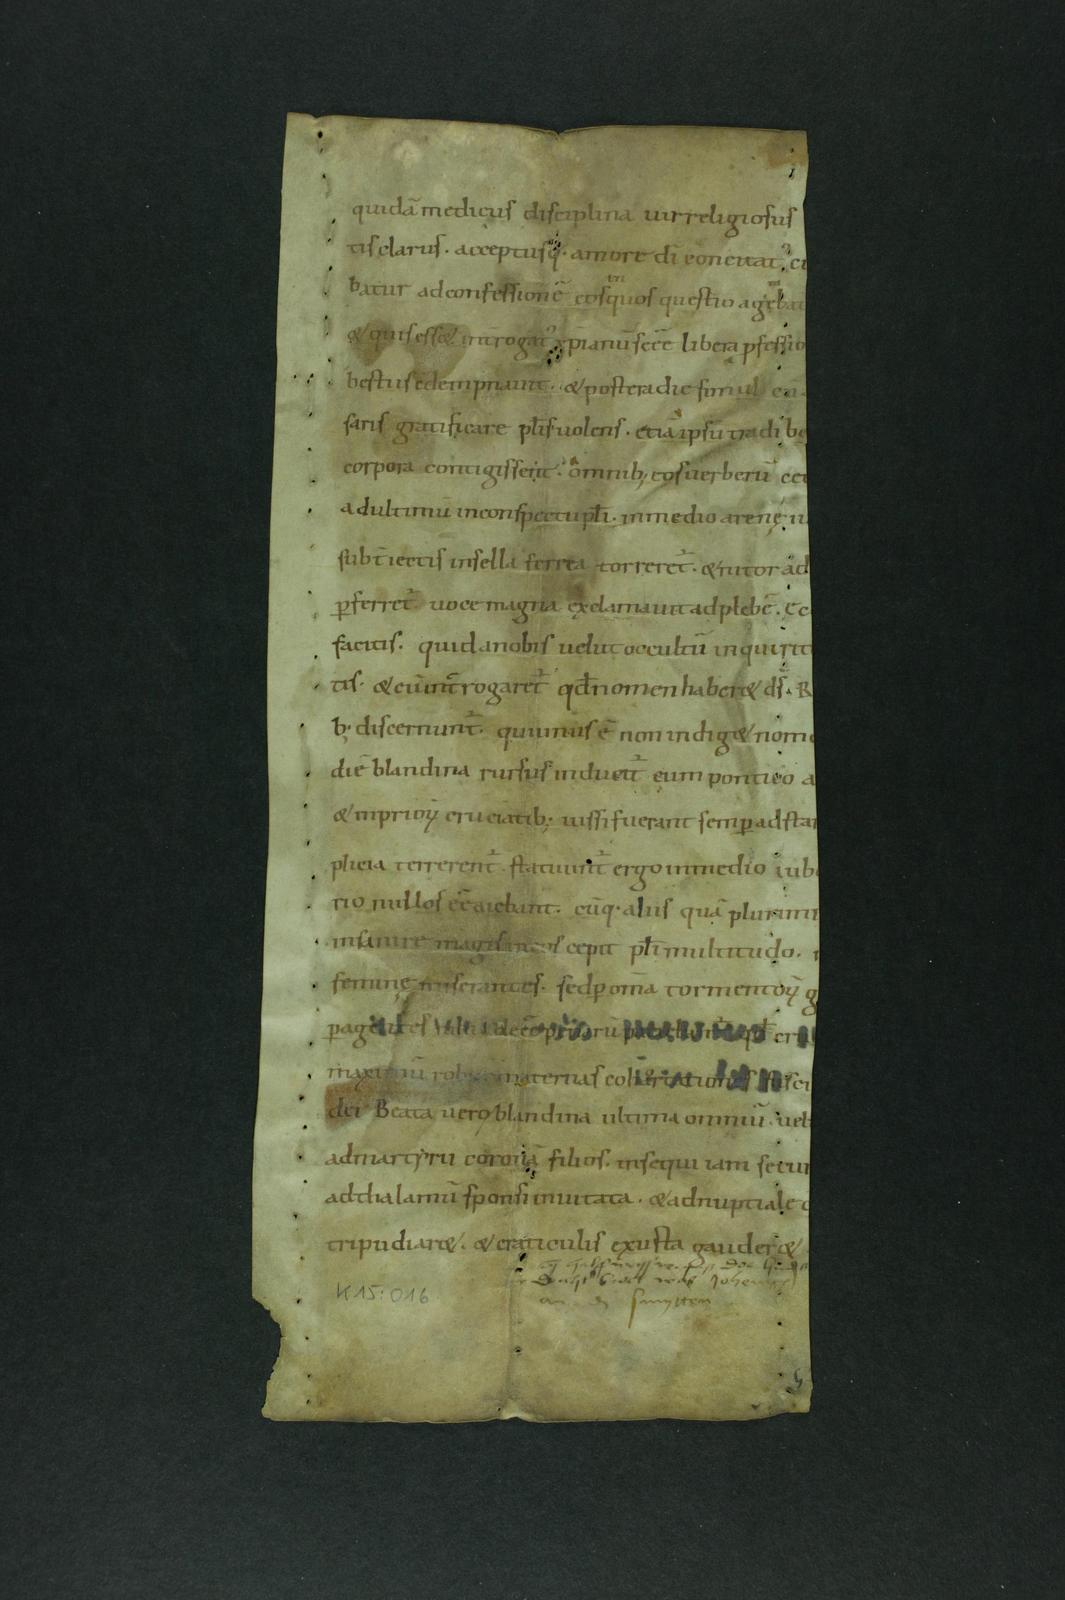 quidā medicus disciplina uir religiosus
tis clarus. acceptusq;. amore di concitat᷒. ci
batur ad confessionē eos in quos questio ageba
& quis ess& introgat᷒ xpianū se eē libera pfessio
bestus cdempnauit. & postera die simul
saris gratificare pli uolens. etiā ipsū tradi be
corpora contigissent. omnib; eos uerberū
ad ultimū in conspectu pli. in medio arenę
subiectis in sella ferrea torreret᷒. & nitor ad
pferret᷒. uoce magna exclamauit ad plebē. Ec
facitis. quid a nobis uelut occultū inquirit
tis. & cū introgaret᷒ qd nomen haber& ds. R
b; discernunt᷒. qui unus ē non indig& nom
diē blandina rursus induciť cum pontico a
& in prioꝝ cruciatib; iussi fuerant semp adsta
plicia terrerent᷒. statuunt᷒ ergo in medio iub
rio nullos eē aiebant. cūq. aliis quā plurim
insanire magis in eos cepit pli multitudo.
feminę miserantes. sed p oma tormentoꝝ g
p agentes
maximū maternas cohortationes
dei Beata uero blandina ultima omniū. uel
ad martyrii coronā filios. insequi iam secur
ad thalamū sponsi inuitata. & ad nuptiale c
tripudiar&. & craticulis exusta gauder&
Johannes
smytten
K15:016